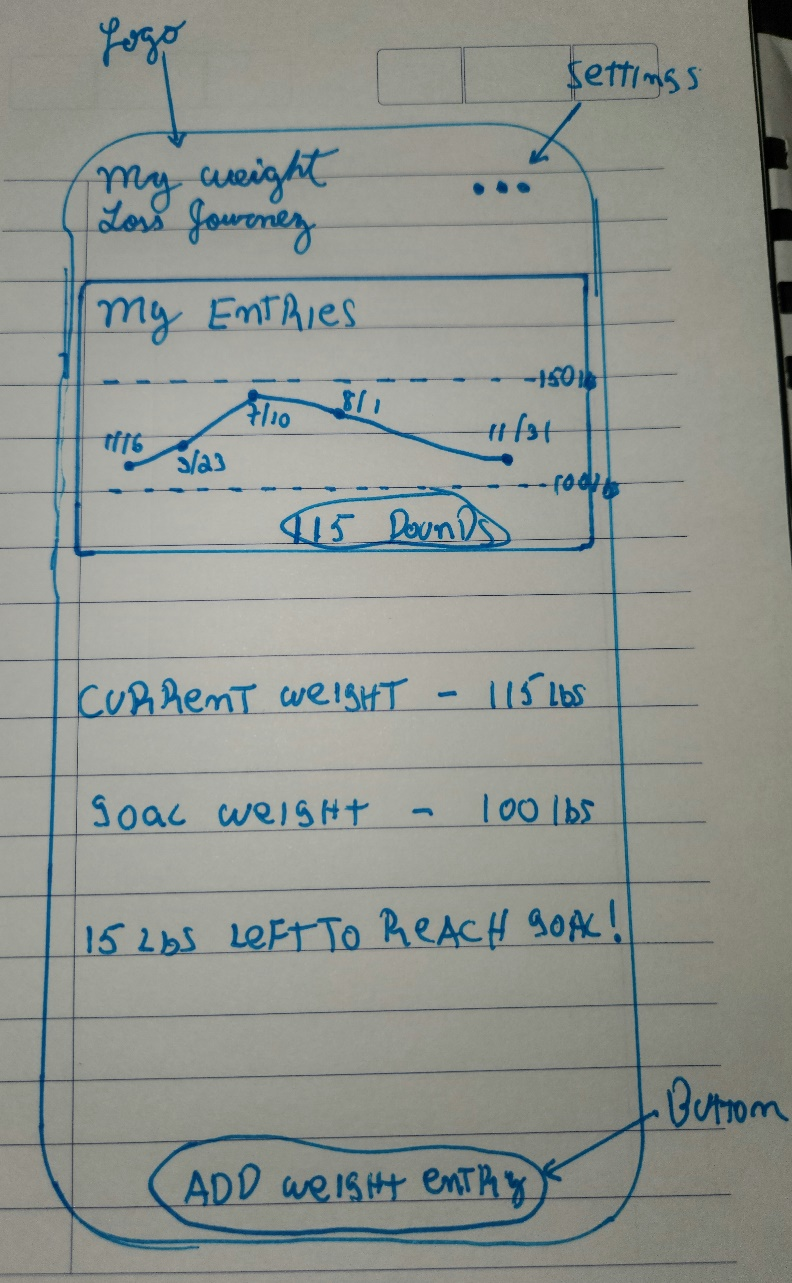 Logo
Settings
My weight
Loss Journey
My Entries
150 lb
7/10
8/1
1/16
3/23
11/31
100 lb
115 Pounds
Current weight - 115 lbs
Goal weight - 100 lbs
15 Lbs Left To Reach Goal!
Button
ADD weight entry